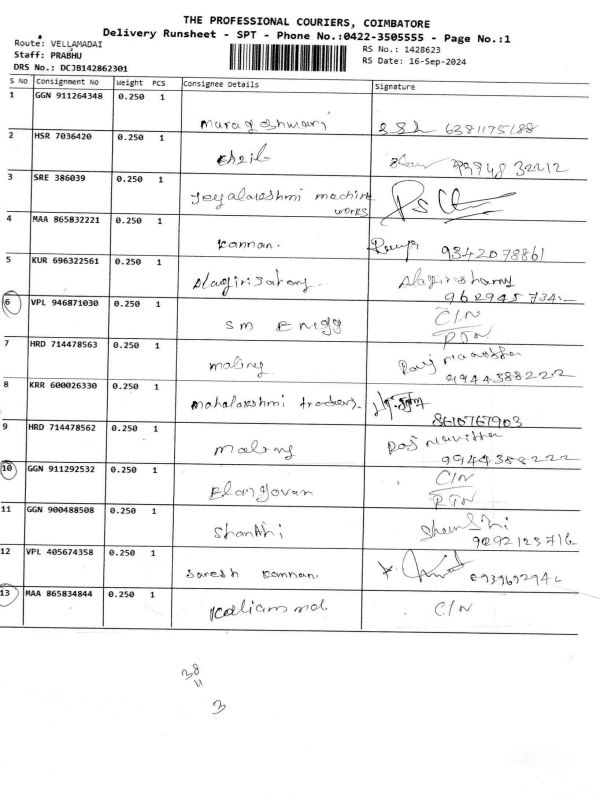 THE PROFESSIONAL COURIERS, COIMBATORE
Delivery Runsheet - SPT - Phone No.:0422-3505555 - Page No.:1
Route: VELLAMADAI
Staff: PRABHU
DRS No.: DCJB142862301
RS No.: 1428623
RS Date: 16-Sep-2024
S No Consignment No Weight PCS Consignee Details Signature
1 GGN 911264348 0.250 1
6381175188
2 HSR 7036420 0.250 1
3 SRE 386039 0.250 1
Jeyalakshmi machine works
4 MAA 865832221 0.250 1
Kannan. Ramya 9342078861
5 KUR 696322561 0.250 1
Alagirisamy.
6 VPL 946871030 0.250 1
SM C/N
RTN
7 HRD 714478563 0.250 1
9944388222
8 KRR 600026330 0.250 1
Mahalakshmi traders.
8610767903
9 HRD 714478562 0.250 1
9944388222
10 GGN 911292532 0.250 1
Elangovan C/N
RTN
11 GGN 900488508 0.250 1
Shanthi Shanthi
12 VPL 405674358 0.250 1
Suresh Kannan.
13 MAA 865834844 0.250 1
C/N
3